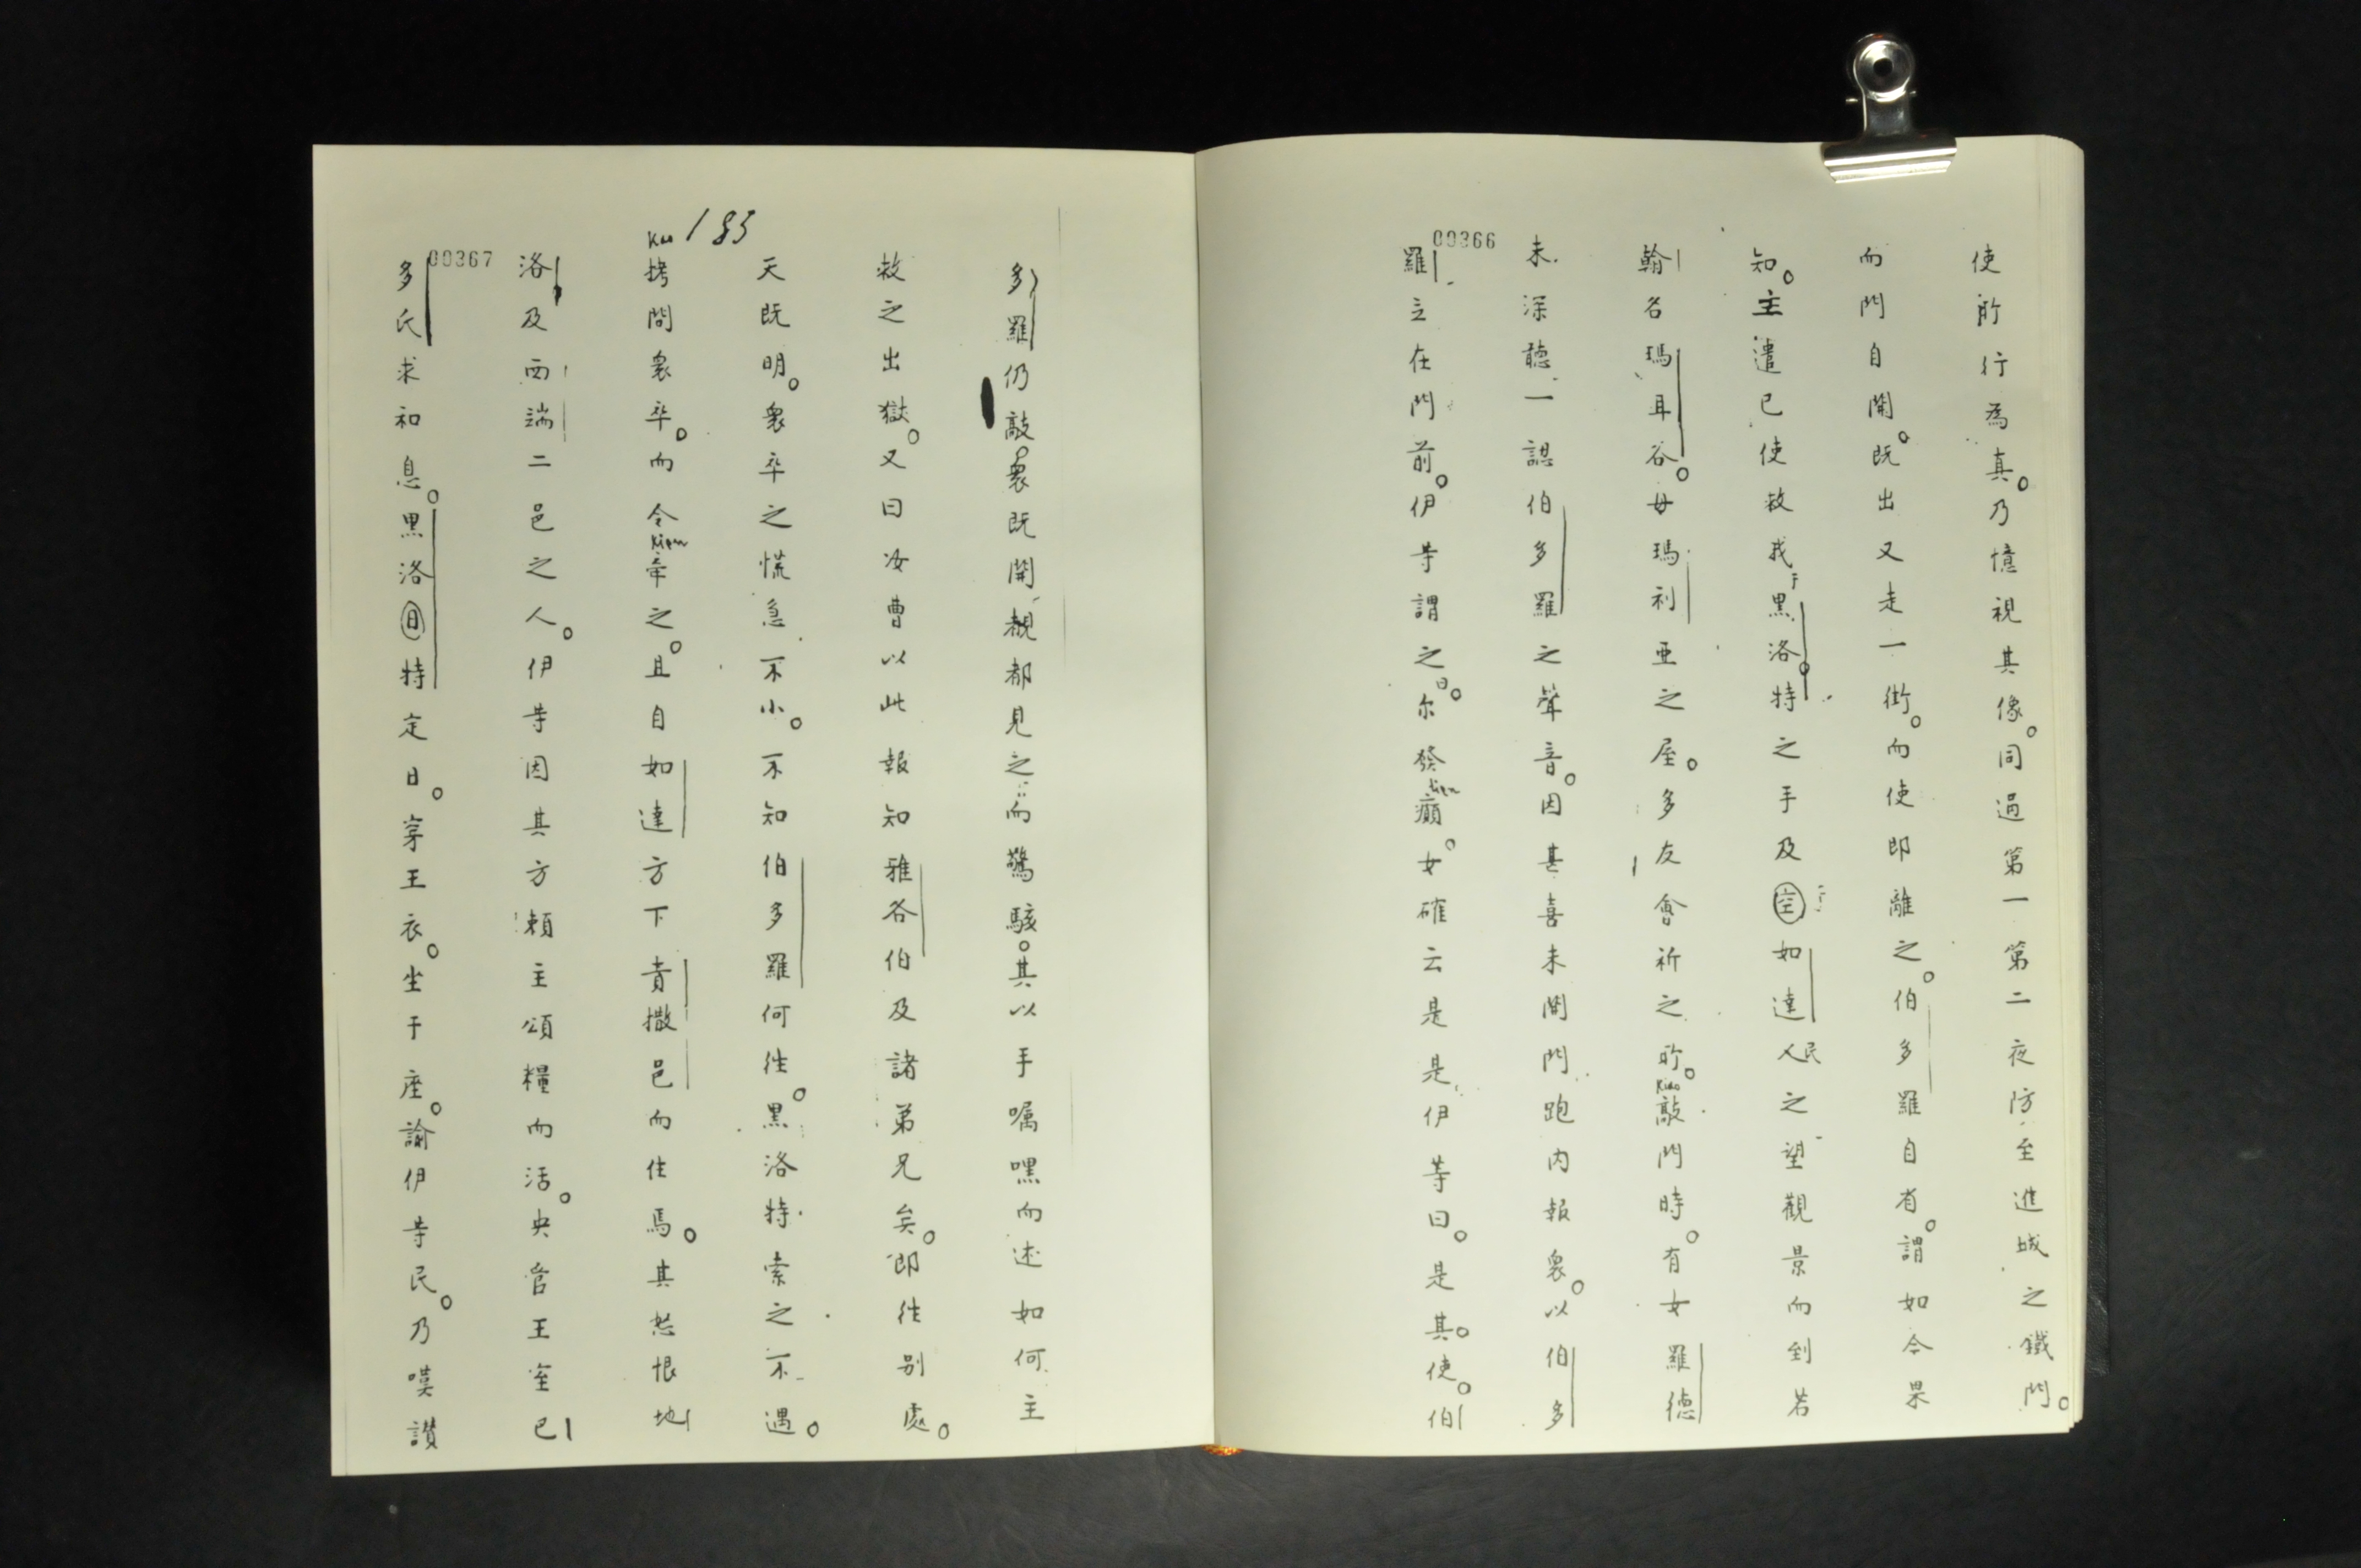 00366
使所行為真。乃憶視其像。同過第一第二夜防至進城之鐵門。
而門自開。既出又走一街。而使即離之。伯多羅自省。謂如今果
知。主遣已使救我于黑洛。特之手及空于如達人民之望觀景而到若
翰名瑪耳谷。母瑪利亜之屋。多友會祈之所。kiao敲門時。有女羅德
未深聽一認伯多羅之聲音。因甚喜未開門跑内報衆。以伯多
羅立在門前。伊等謂之曰。尔發tien癲。女確云是是伊等曰。是其。使。伯
183
00367
多羅仍敲。衆既開觀都見之而驚駭。其以手嘱嘿而述如何主
救之出獄。又曰汝曹以此報知雅各伯及諸弟兄矣。即往别處。
天既明。衆卒之慌急不小。不知伯多羅何往。黑洛特索之不遇。
Kao拷問衆卒。而令Kien牽之。且自如達方下責撒邑而住焉。其怒恨地
洛及西端二邑之人。伊等因其方賴主頒糧而活。央官王室已
多氏求和息。黑洛日特定日。穿王衣。坐于座。諭伊等民。乃嘆讃